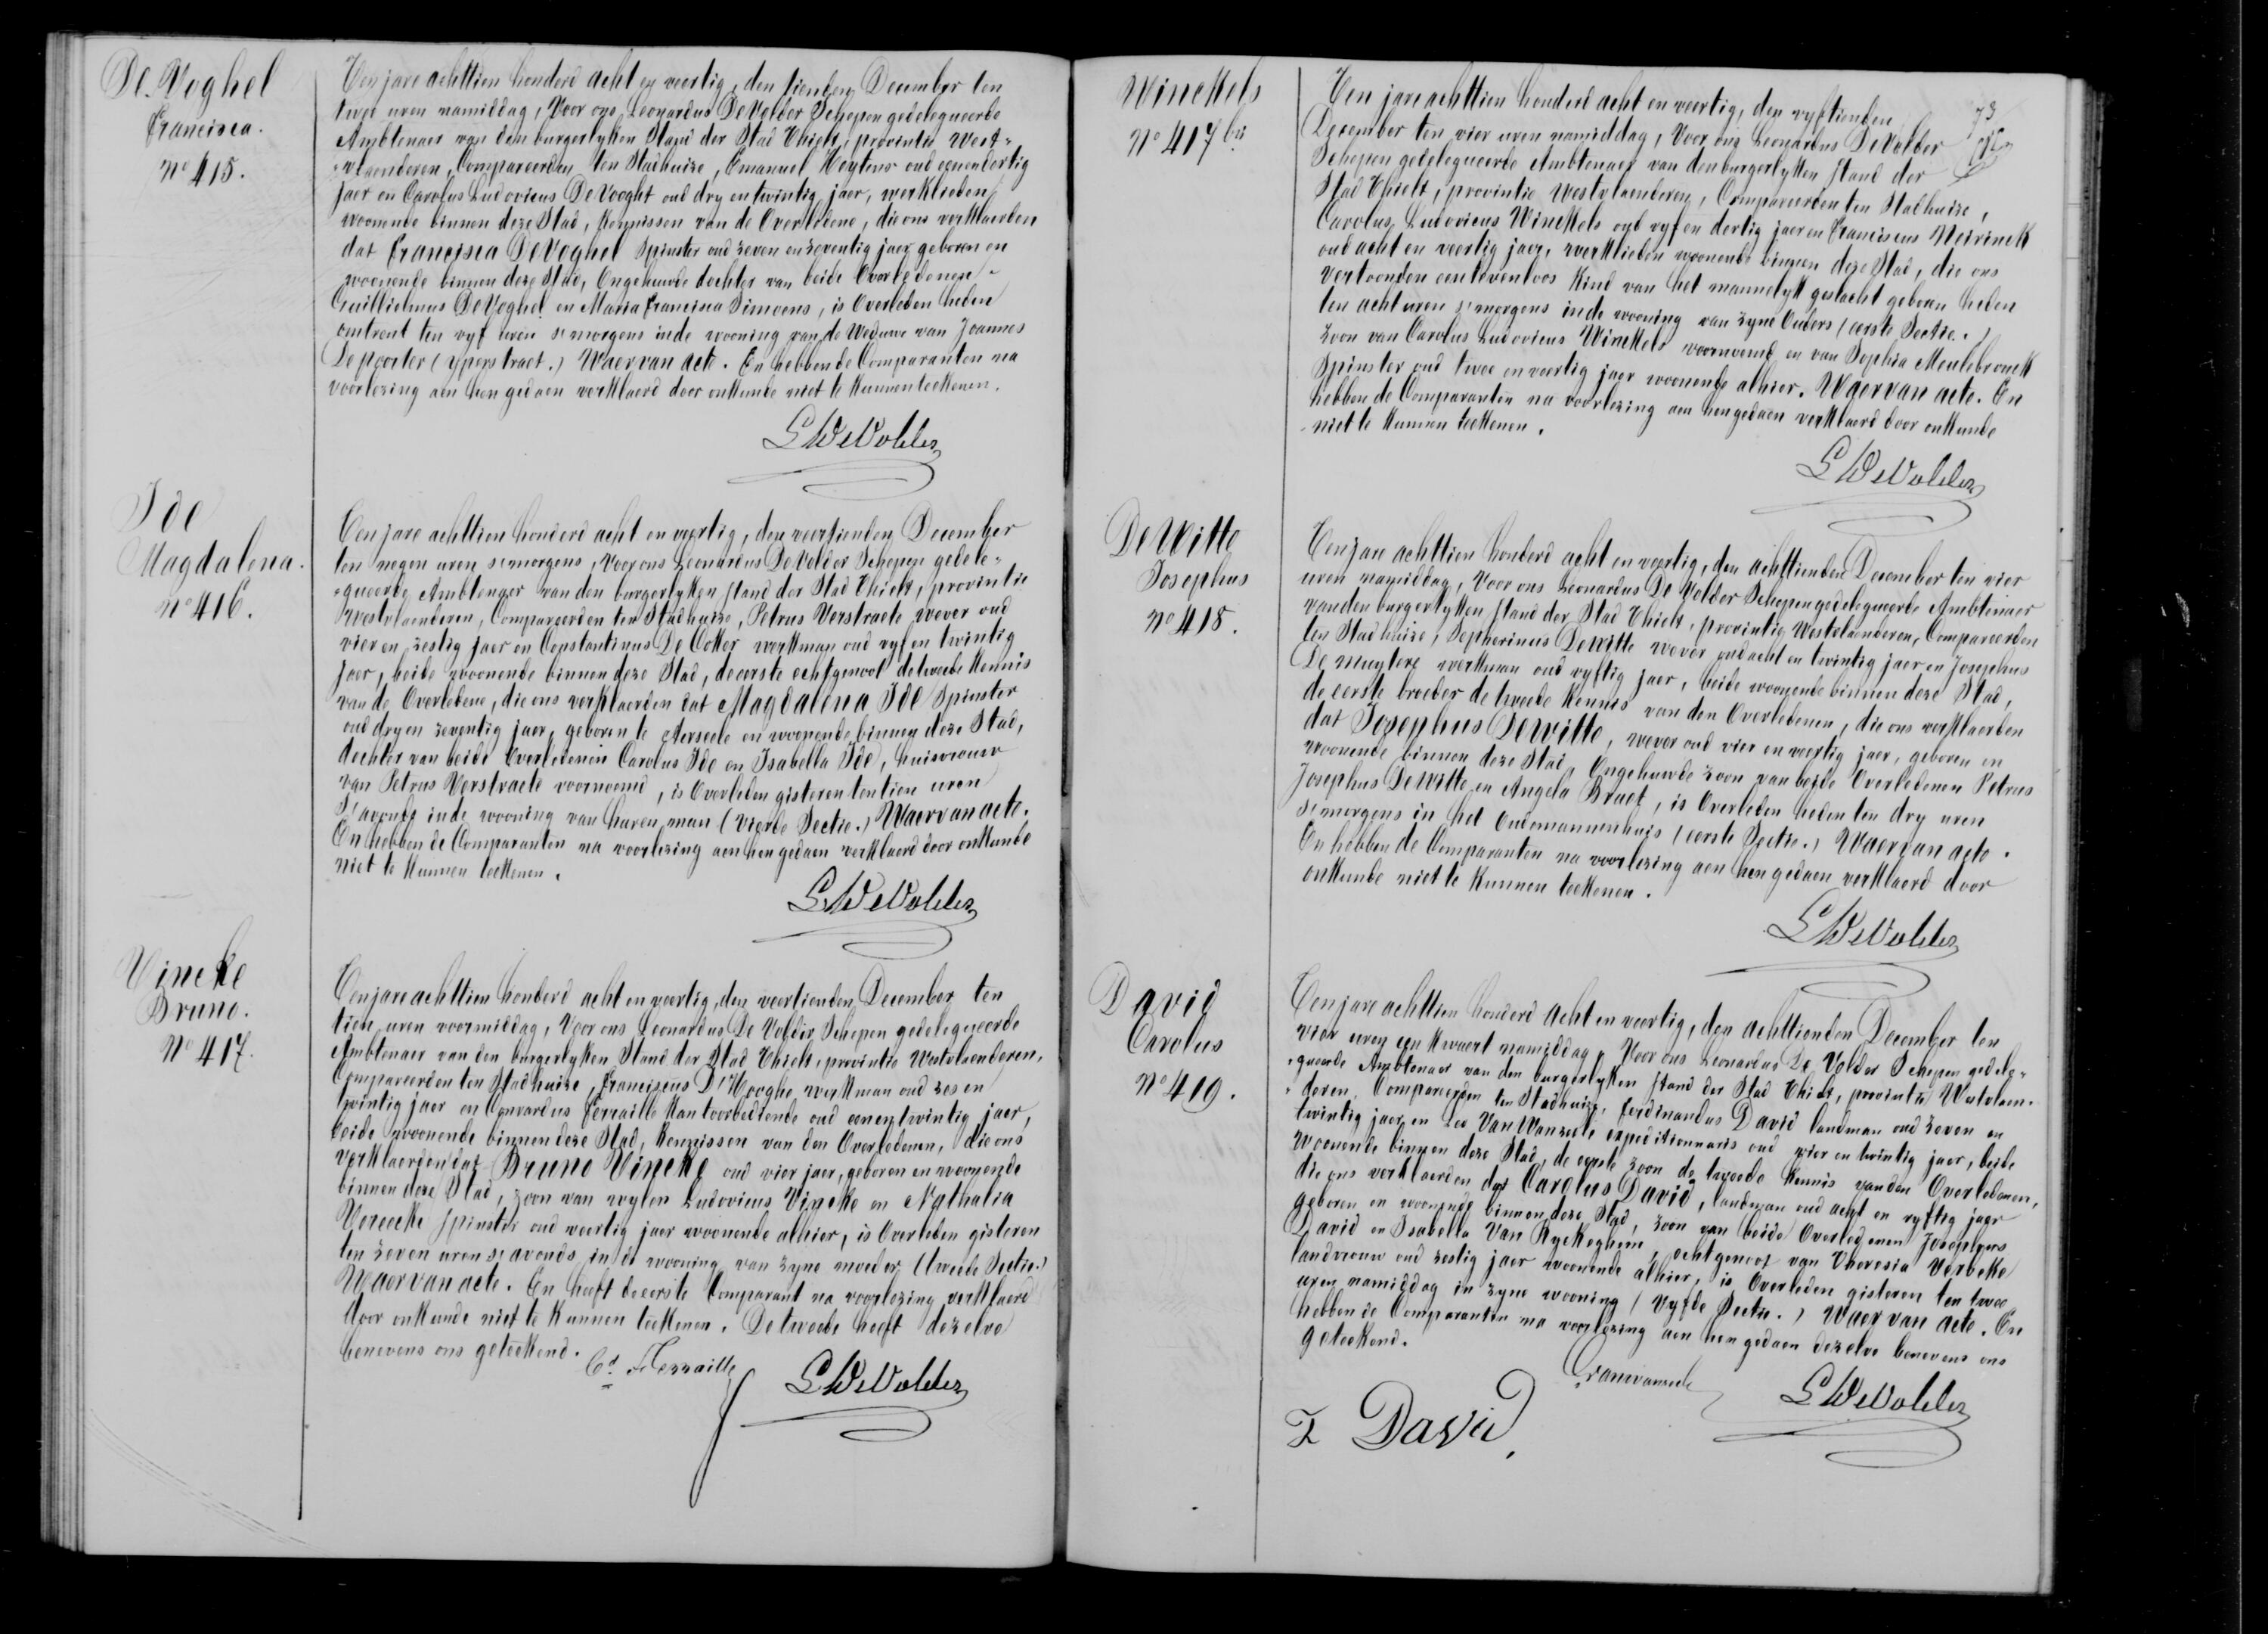 De Voghel
Francisca.
No 415.
Ten jare achttien honderd acht en veertig, den tienden December ten
twee uren namiddag, Voor ons Leonardus De Volder Schepen gedelegueerde
Ambtenaer van den burgerlyken Stand der Stad Thielt, provintie West-
-vlaenderen, Compareerden ten Stadhuize, Emanuel oud eenendertig
jaer en Carolus Ludovicus De Vooght oud dry en twintig jaer, werklieden
woonende binnen deze Stad, Kennissen van de Overledene, die ons verklaerden
dat Francisca De Voghel Spinster oud zeven en zeventig jaer geboren en
woonende binnen deze Stad, Ongehuwde dochter van beide Overledenen
Guillielmus De Voghel en Maria Francisca Simoens, is Overleden heden
omtrent ten vyf uren s'morgens inde wooning van de Weduwe van Joannes
De poorter (yperstraet.) Waervan acte. En hebben de Comparanten na
voorlezing aen hen gedaen verklaerd door onkunde niet te kunnen teekenen.
L DeVolder
Ide
Magdalena.
No 416.
Ten jare achttien honderd acht en veertig, den veertienden December
ten negen uren s'morgens, Voor ons Leonardus De Volder Schepen gedele-
-gueerde Ambtenaer van den burgerlyken Stand der Stad Thielt, provintie
Westvlaenderen, Compareerden ten Stadhuize, Petrus Verstraete wever oud
vier en zestig jaer en Constantinus De Cotter werkman oud vyf en twintig
jaer, beide woonende binnen deze Stad, de eerste echtgenoot de tweede Kennis
van de Overledene, die ons verklaerden dat Magdalena Ide Spinster
oud dry en zeventig jaer, geboren te Aerseele en woonende binnen deze Stad,
dochter van beide Overledenen Carolus Ide en Isabella Ide, huisvrouw
van Petrus Verstraete voornoemd, is Overleden gisteren ten tien uren
s'avonds inde wooning van haren man (vierde Sectie.) Waervan acte.
En hebben de Comparanten na voorlezing aen hen gedaen verklaerd door onkunde
niet te kunnen teekenen.
L DeVolder
Vincke
Bruno.
No 417.
Ten jare achttien honderd acht en veertig, den veertienden December ten
tien uren voormiddag, Voor ons Leonardus De Volder Schepen gedelegueerde
Ambtenaer van den burgerlyken Stand der Stad Thielt, provintie Westvlaenderen,
Compareerden ten Stadhuize, Franciscus D'Hooghe werkman oud zes en
twintig jaer en Edouardus Ferraille kantoorbediende oud eenentwintig jaer,
beide woonende binnen deze Stad, Kennissen van den Overledenen, die ons
verklaerden dat Bruno Vincke oud vier jaer, geboren en woonende
binnen deze Stad, zoon van wylen Ludovicus Vincke en Nathalia
Vereecke Spinster oud veertig jaer woonende alhier, is Overleden gisteren
ten zeven uren s'avonds in de wooning van zyne moeder (tweede Sectie.)
Waervan acte. En heeft de eerste Comparant na voorlezing verklaerd
door onkunde niet te kunnen teekenen. De tweede heeft dezelve
benevens ons geteekend.
Ed Ferraille
L DeVolder
Winckels
No 417 bis
73
Ten jare achttien honderd acht en veertig, den vyftienden
December ten vier uren namiddag, Voor ons Leonardus De Volder
Schepen gedelegueerde Ambtenaer van den burgerlyken Stand der
Stad Thielt, provintie Westvlaenderen, Compareerden ten Stadhuize,
Carolus Ludovicus Winckels oud vyf en dertig jaer en Franciscus Meirinck
oud acht en veertig jaer, werklieden woonende binnen deze Stad, die ons
vertoonden een levenloos Kind van het mannelyk geslacht geboren heden
ten acht uren s'morgens inde wooning van zyne Ouders (eerste Sectie.)
zoon van Carolus Ludovicus Winckels voornoemd en van Sophia Meulebrouck
Spinster oud twee en veertig jaer woonende alhier. Waervan acte. En
hebben de Comparanten na voorlezing aen hen gedaen verklaerd door onkunde
niet te kunnen teekenen.
L DeVolder
De Witte
Josephus
No 418.
Ten jare achttien honderd acht en veertig, den achttienden December ten vier
uren namiddag, Voor ons Leonardus De Volder Schepen gedelegueerde Ambtenaer
van den burgerlyken Stand der Stad Thielt, provintie Westvlaenderen, Compareerden
ten Stadhuize, Sepherinus De Witte wever oud acht en twintig jaer en Josephus
De muytere werkman oud vyftig jaer, beide woonende binnen deze Stad,
de eerste broeder de tweede Kennis van den Overledenen, die ons verklaerden
dat Josephus De Witte, wever oud vier en veertig jaer, geboren en
woonende binnen deze Stad, Ongehuwde zoon van beide Overledenen Petrus
Josephus De Witte en Angela Braet, is Overleden heden ten dry uren
s'morgens in het Oudemannenhuis (eerste Sectie.) Waervan acte.
En hebben de Comparanten na voorlezing aen hen gedaen verklaerd door
onkunde niet te kunnen teekenen.
L DeVolder
David
Carolus
No 419.
Ten jare achttien honderd acht en veertig, den achttienden December ten
vier uren een kwaert namiddag, Voor ons Leonardus De Volder Schepen gedele-
-gueerde Ambtenaer van den burgerlyken Stand der Stad Thielt, provintie Westvlaen-
-deren, Compareerden ten Stadhuize, Ferdinandus David landman oud zeven en
twintig jaer en Leo Van Wanzeele expeditionnaris oud vier en twintig jaer, beide
woonende binnen deze Stad, de eerste zoon de tweede Kennis van den Overledenen,
die ons verklaerden dat Carolus David, landman oud acht en vyftig jaer
geboren en woonende binnen deze Stad, zoon van beide Overledenen Josephus
David en Isabella Van Ryckeghem, echtgenoot van Theresia Verbeke
landvrouw oud zestig jaer woonende alhier, is Overleden gisteren ten twee
uren namiddag in zyne wooning (Vyfde Sectie.) Waer van acte. En
hebben de Comparanten na voorlezing aen hen gedaen dezelve benevens ons
geteekend.
L vanwanzeele
L DeVolder
F David